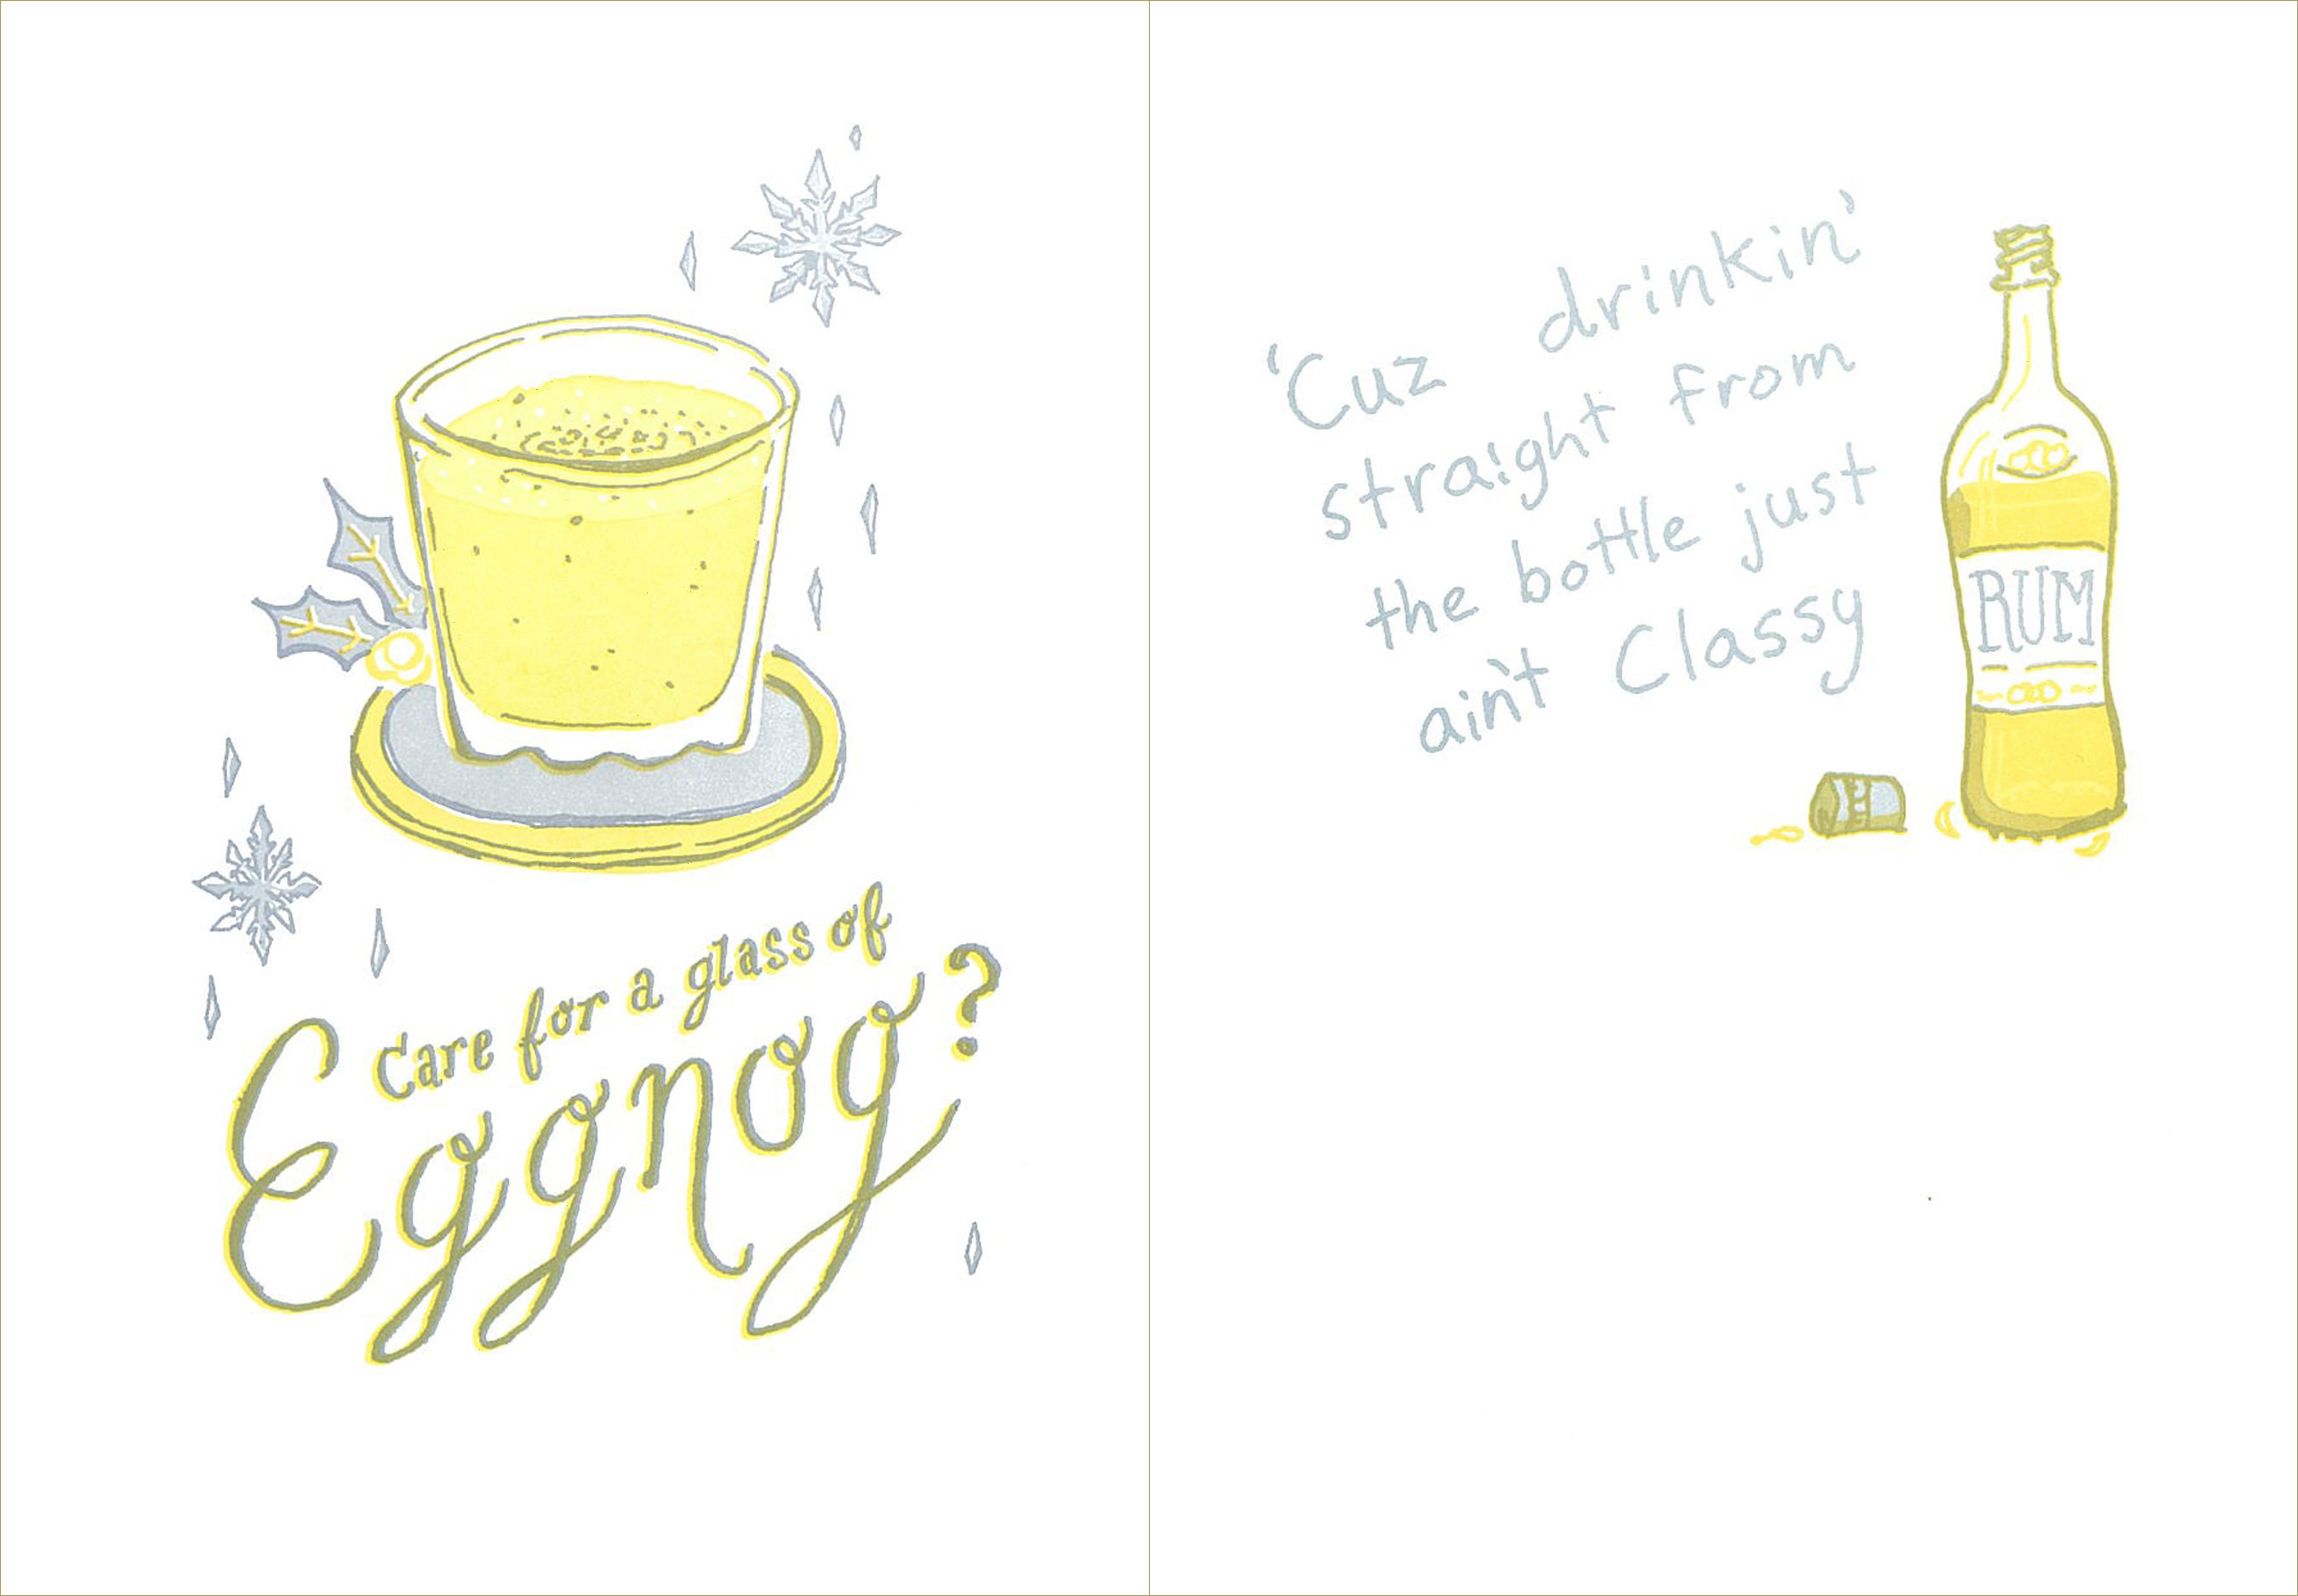 Care for a glass of
Eggnog?
'Cuz drinkin'
straight from
the bottle just
ain't Classy
RUM